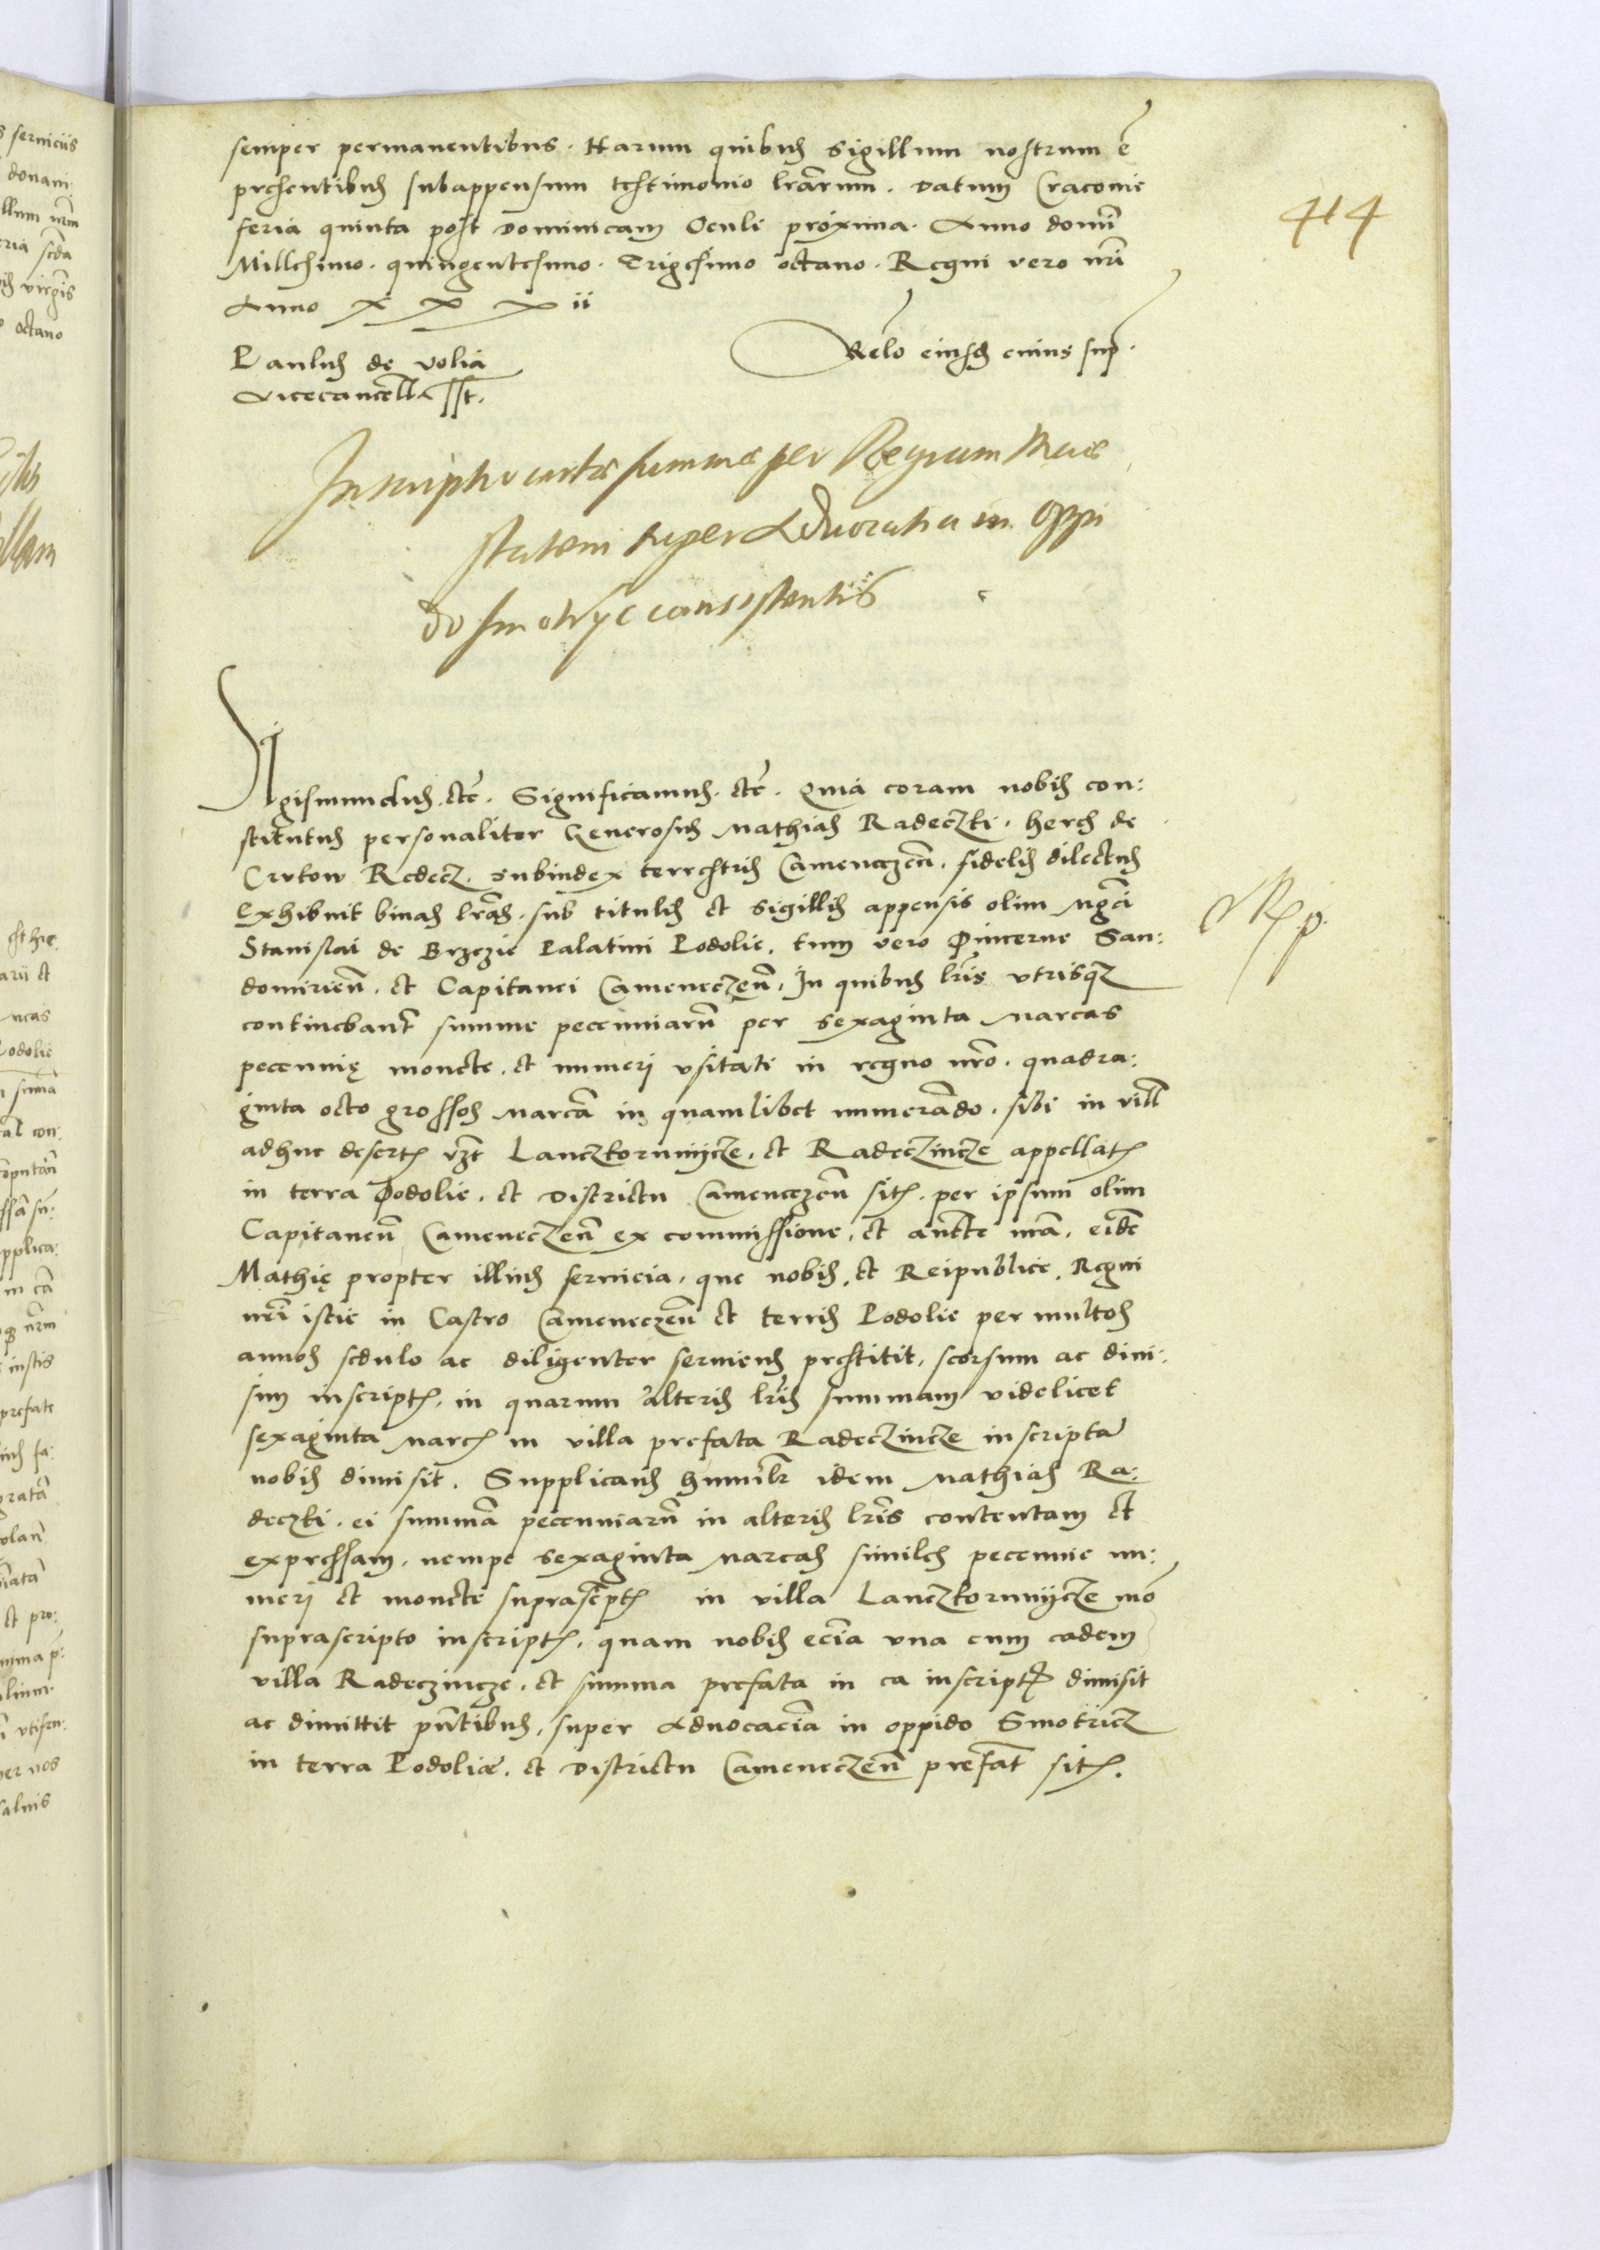 semper permanentibus. Harum quibus sigillum nostrum ē
presentibus subappensum testimonio lrārum. Datum Cracovie
feria quinta post Dominicam Oculi proxima. Anno domī
Millesimo. quingentesimo. Trigesimo octavo. Regni vero nrī
Anno XXXii
Paulus de Volia
Vicecancell. sst.
Relo eiusdē cuius sup.
414
Inscriptio certae summae per Regiam Maie
statem super Advocatia in oppi
do Smotryc consistentis
Sigismundus etc. Significamus. etc. Quia coram nobis con:
stitutus personaliter Generosus Mathias Radeczki. heres de
Crutow Redecz. Subiudex terrestris Cameneczeñ. fidelis dilectus
Exhibuit binas lrās. sub titulis et sigillis appensis olim Mgcī
Stanislai de Brzezie Palatini Podolie. tum vero Pincerne San:
domirieñ. et Capitanei Cameneczeñ. In quibus lrīs utrisqz
continebant summe pecunniarū per sexaginta Marcas
pecunnię monete. et numeri usitati in regno nrō. quadra:
ginta octo grossos Marcā in quamlibet numerando. sibi in vill
adhuc desert uzt Lanczkorunycze. et Radeczincze appellat
in terra Podolie. et Districtu Cameneczeñ sit. per ipsum olim
Capitaneū Cameneczeñ ex commissione. et auctte nrā. eidē
Mathię propter illius servicia. que nobis. et Reipublice. Regni
nrī istic in Castro Cameneczeñ et terris Podolie per multos
annos sedulo ac diligenter serviens prestitit. seorsum ac divi:
sim inscript. in quarum alteris lrīs summam videlicet
sexaginta Marc in villa prefata Radeczincze inscriptā
nobis dimisit. Supplicans humilr idem Mathias Ra:
deczki. ei summā pecunniarū in alteris lrīs contentam et
expressam. nempe sexaginta Marcas similes pecunnie nu:
meri et monete suprascpt in villa Lanczkorunycze mō
suprascripto inscript. quam nobis eciā una cum eadem
villa Radeczincze. et summa prefata in ea inscript dimisit
ac dimittit pn̄tibus. super Advocaciā in oppido Smotricz
in terra Podoliae. et Districtu Cameneczeñ prefat sit.